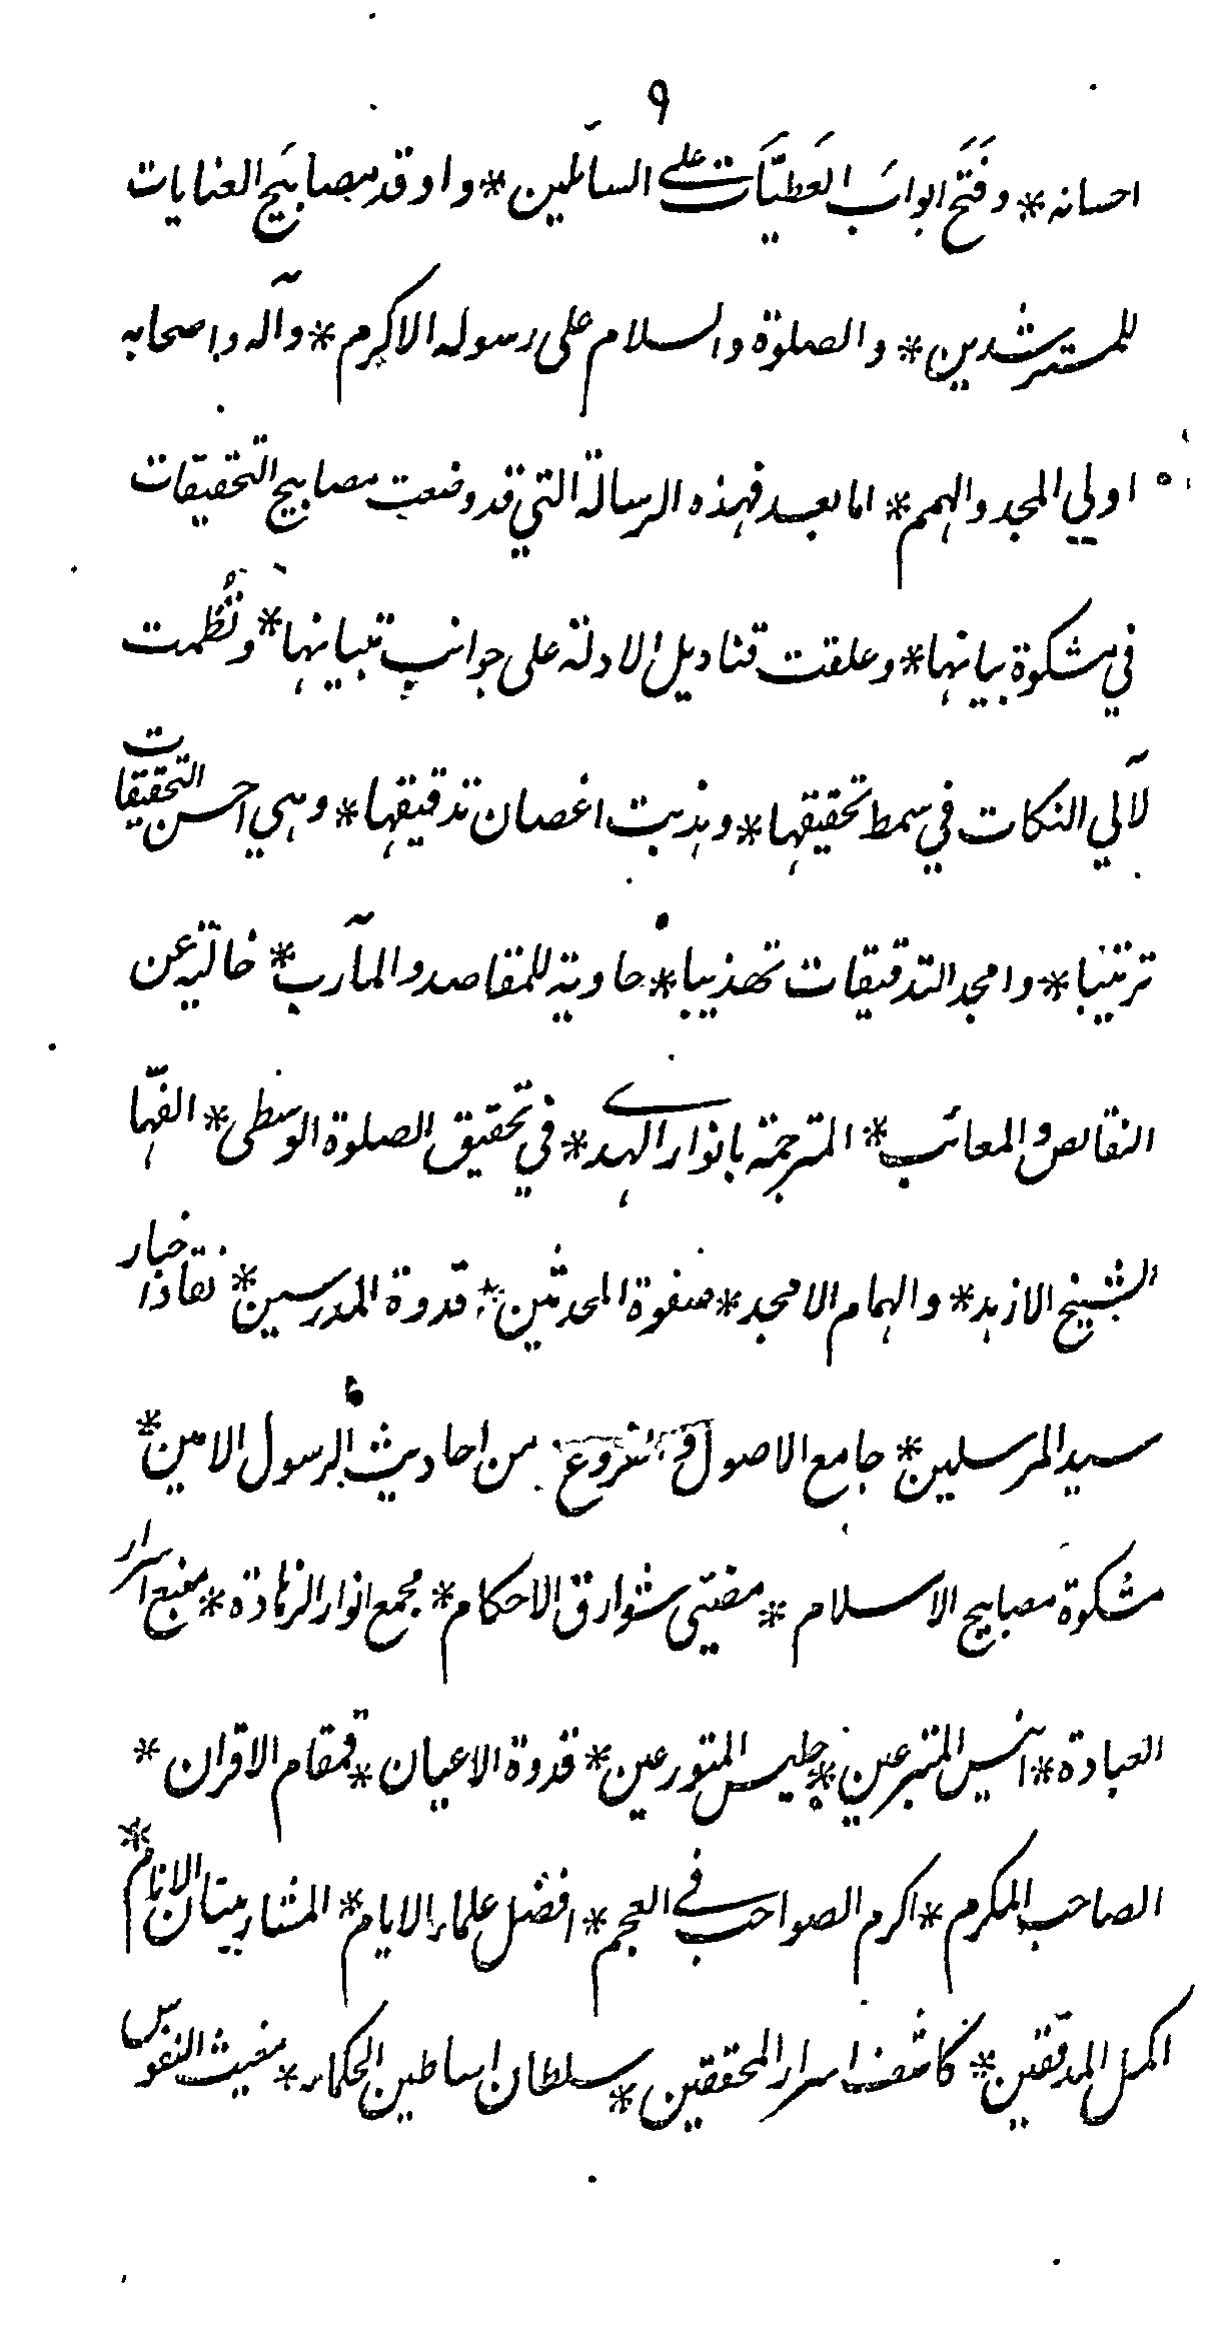 ٩
احسانه * وفَتَح ابوابَ العَطيَّات على السآئلين * واوقد مصابيَح العنايات
للمسترشدين * والصلوة والسلام على رسوله الاكرم * وآله واصحابه
اولي المجد والهمم * اما بعد فهذه الرسالة التي قد وضعت مصابيح التحقيقات
في مشكوة بيانها * وعلقت قناديل الادلة على جوانب تبيانها * ونُظمت
لآلي النكات في سمط تحقيقها * وهذبت اغصان تدقيقها * وهي احسن التحقيقات
ترتيبا * وامجد التدقيقات تهذيبا * حاوية للمقاصد والمآرب * خالية عن
النقائص والمعائب * المترجمة بانوار الهدى * في تحقيق الصلوة الوسطى * الفّها
الشيخ الازهد * والهمام الامجد * صفوة المحدثين * قدوة المدرسين * نقاد اخبار
سيد المرسلين * جامع الاصول والفروع من احاديث الرسول الامين *
مشكوة مصابيح الاسلام * مفتي شوارق الاحكام * مجمع انوار الزهادة * منبع اسرار
العبادة * انيس المتبرعين * جليس المتورعين * قدوة الاعيان * قمقام الاقران *
الصاحب المكرم * اكرم الصواحب في العجم * افضل علماء الايام * المشار ببنان الانام *
اكمل المدققين * كاشف اسرار المحققين * سلطان اساطين الحكماء * مغيث النفوس